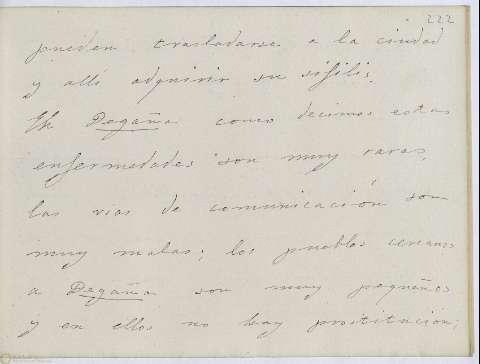 222
pueden trasladarse a la ciudad
y allí adquirir su sífilis.
En Degaña como decimos estas
enfermedades son muy raras,
las vias de comunicación son
muy malas; los pueblos cercanos
a Degaña son muy pequeños
y en ellos no hay prostitución;